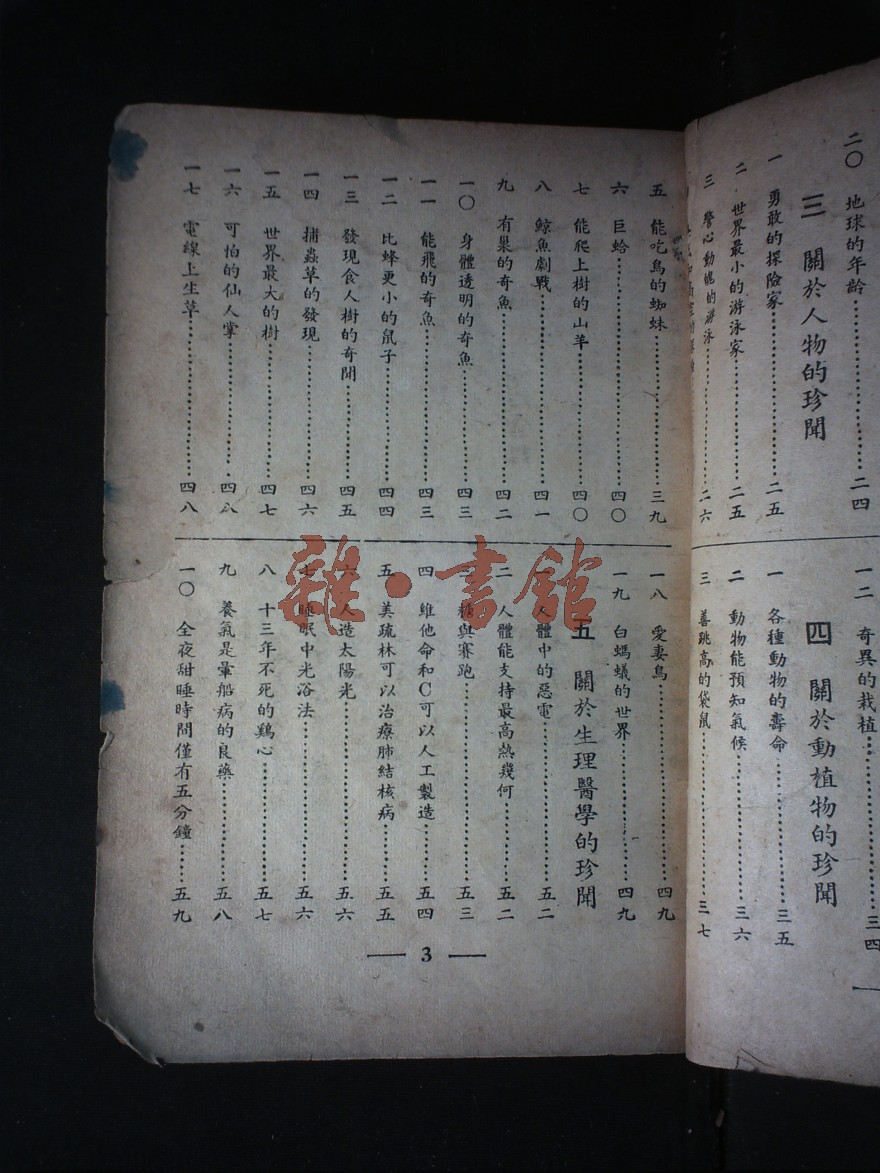 二〇 地球的年齡……二四
三 關於人物的珍聞
一 勇敢的探險家……二五
二 世界最小的游泳家……二五
三 驚心動魄的游泳……二六
一二 奇異的栽植……三四
四 關於動植物的珍聞
一 各種動物的壽命……三五
二 動物能預知氣候……三六
三 善跳高的袋鼠……三七
五 能吃鳥的蜘蛛……三九
六 巨蛤……四〇
七 能爬上樹的山羊……四〇
八 鯨魚劇戰……四一
九 有巢的奇魚……四二
一〇 身體透明的奇魚……四三
一一 能飛的奇魚……四三
一二 比蜂更小的鼠子……四四
一三 發現食人樹的奇聞……四五
一四 捕蟲草的發現……四六
一五 世界最大的樹……四七
一六 可怕的仙人掌……四八
一七 電線上生草……四八
一八 愛妻鳥……四九
一九 白螞蟻的世界……四九
五 關於生理醫學的珍聞
一 人體中的惡電……五二
二 人體能支持最高熱幾何……五二
三 糖與賽跑……五三
四 維他命和C可以人工製造……五四
五 美疏林可以治療肺結核病……五五
六 人造太陽光……五六
七 睡眠中光浴法……五六
八 十三年不死的鷄心……五七
九 養氣是暈船病的良藥……五八
一〇 全夜甜睡時間僅有五分鐘……五九
3
雜·書館